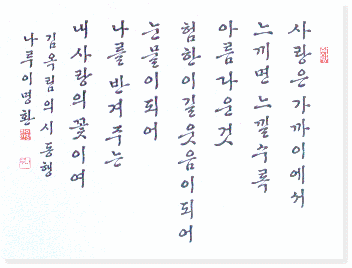 사랑은 가까이에서
느끼면 느낄수록
아름다운 것
험한 이 길 웃음이 되어
눈물이 되어
나를 반겨 주는
내 사랑의 꽃이여
김옥림의 시 동행
나루 이명환